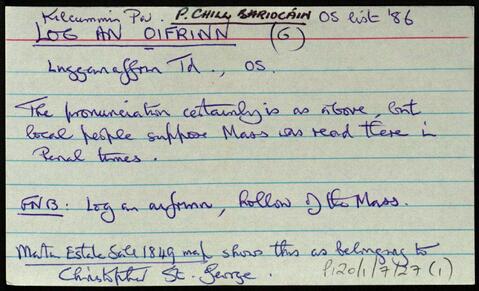 Kilcummin Par. P. CHILL BHRIOCÁIN OS list '86
LOG AN OIFRINN (G)
Luggananaffrin Td., OS.
The pronunciation certainly is as above, but
local people suppose Mass was read there in
Penal times.
FNB: Log an aifrinn, hollow of the Mass.
Martin Estate Sale 1849 map shows this as belonging to
Christopher St. George.
P120/1/7/27 (1)